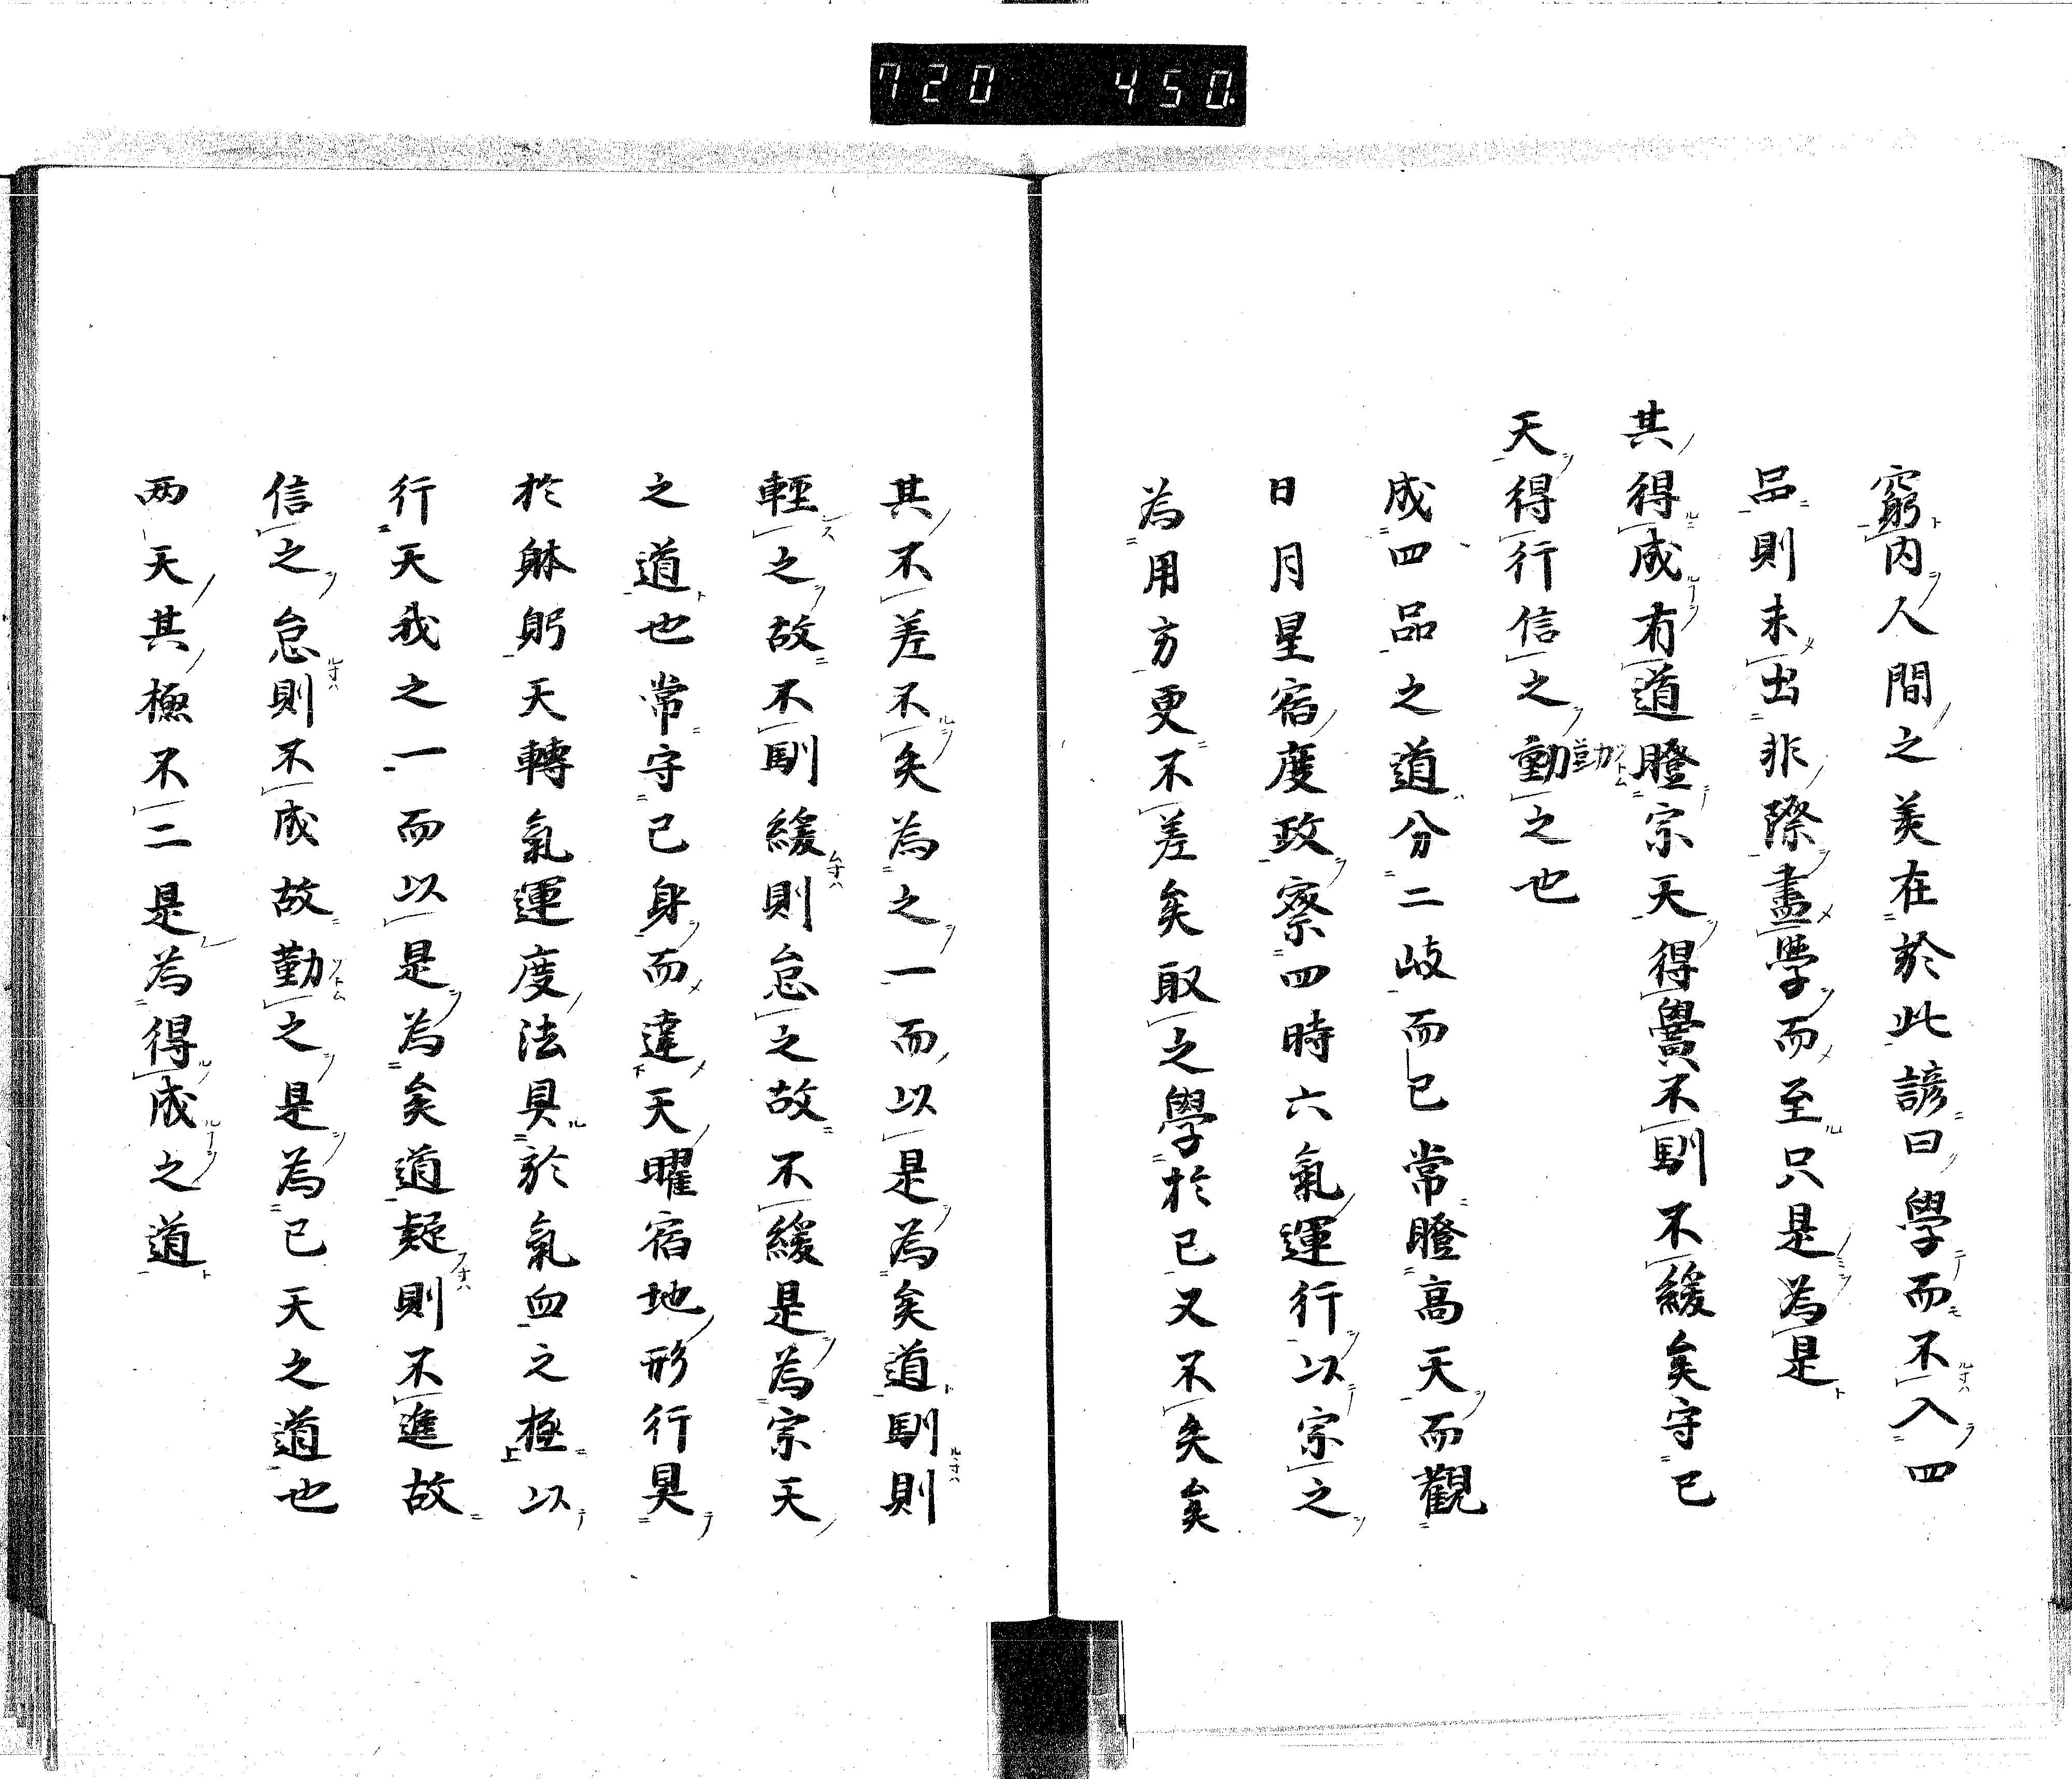 720 450.
窮内人間之美在於此諺曰學而不入四
品則未出非際盡學而至只是為是
其得成有道瞪宗天得黌不馴不緩矣守己
天得行信之動之也
勤
成四品之道分二岐而已常瞪高天而觀
日月星宿度政察四時六氣運行以宗之
為用方更不差矣取之學於己又不失矣
其不差不失為之一而以是為矣道馴則
輕之故不馴緩則怠之故不緩是為宗天
之道也常守己身而違天曜宿地形行具
於躰躬天轉氣運度法具於氣血之極以
行天我之一而以是為矣道疑則不進故
信之怠則不成故勤之是為己天之道也
两天其極不二是為得成之道